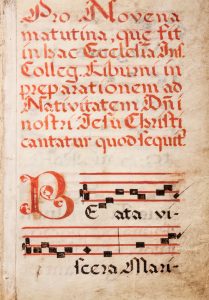 Pro Novena
matutina, que fit
in hac Ecclesia Ins.
Colleg. Liburni in
preparationem ad
Nativitatem Dñi
nostri Jesu Christi
cantatur quod sequit.
B
Eata vi-
scera Mari-